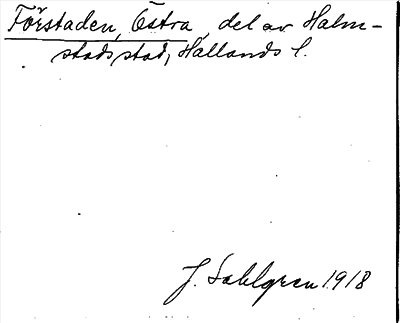 Förstaden, Östra, del av Halm-
stads stad, Hallands l.
J. Sahlgren 1918